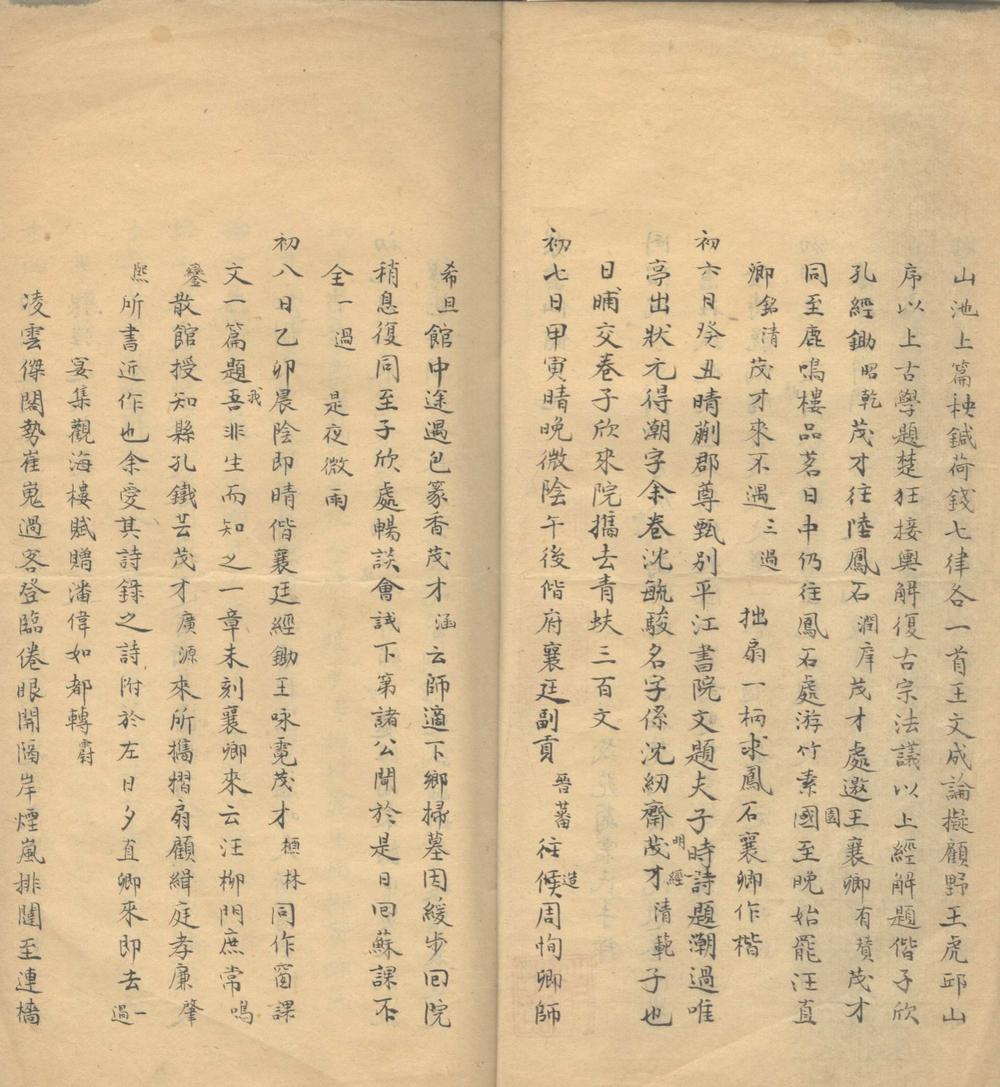 山池上篇秧鍼荷錢七律各一首王文成論擬顧野王虎邱山
序以上古學題楚狂接輿解復古宗法議以上經解題偕子欣
孔經鋤昭乾茂才往陸鳳石潤庠茂才處邀王襄卿有贊茂才
同至鹿鳴樓品茗日中仍往鳳石處游竹素園至晚始罷汪直
卿銘清茂才來不遇三過 拙扇一柄求鳳石襄卿作楷
初六日癸丑晴蒯郡尊甄別平江書院文題夫子時詩題潮過唯
亭出狀元得潮字余卷沈毓駿名字係沈紉齋茂才明經清範子也
日晡交卷子欣來院攜去青蚨三百文
初七日甲寅晴晚微陰午後偕府襄廷副貢晉蕃往候造周恂卿師
希旦館中途遇包篆香茂才涵云師適下鄉掃墓因緩步回院
稍息復同至子欣處暢談會試下第諸公聞於是日回蘇課不
全一過 是夜微雨
初八日乙卯晨陰即晴偕襄廷經鋤王咏霓茂才極林同作窗課
文一篇題吾我非生而知之一章未刻襄卿來云汪柳門庶常鳴
鑾散館授知縣孔鐵芸茂才廣源來所攜摺扇顧緝庭孝廉肇
熙所書近作也余愛其詩錄之詩附於左日夕直卿來即去一過
宴集觀海樓賦贈潘偉如都轉霨
凌雲傑閣勢崔嵬過客登臨倦眼開隔岸煙嵐排闥至連檣